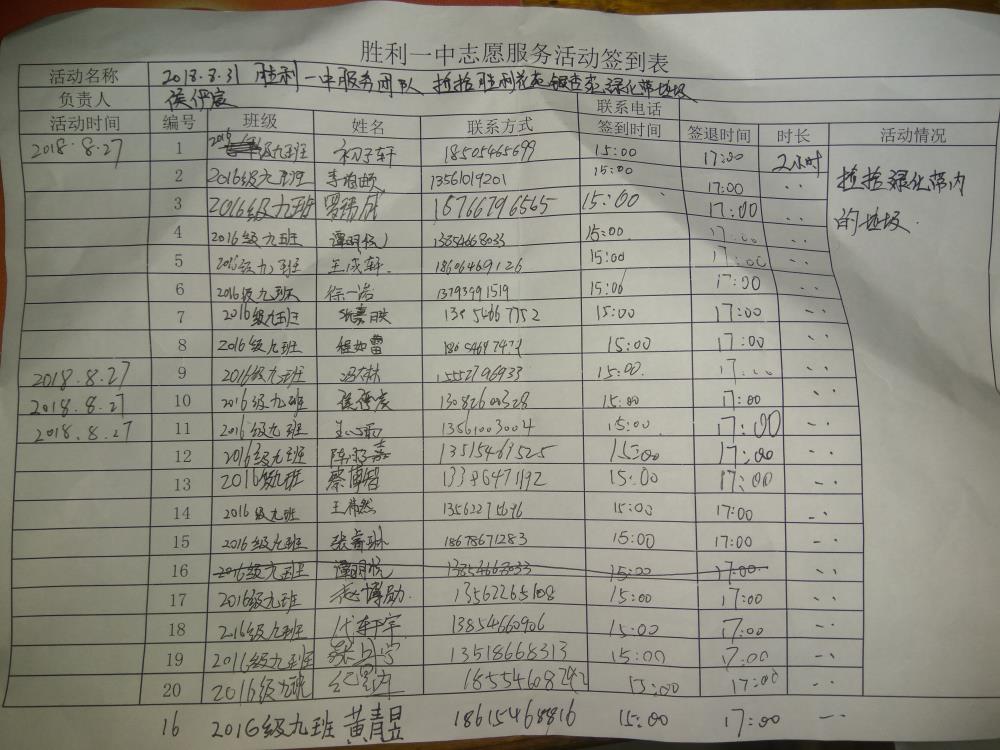 胜利一中志愿服务活动签到表
活动名称 2018.8.31 胜利一中服务团队 捡拾胜利花苑银杏家绿化带垃圾
负责人 侯伊宸 联系电话
活动时间 编号 班级 姓名 联系方式 签到时间 签退时间 时长 活动情况
2018.8.27 1 2016级九班 初子轩 18505465699 15:00 17:00 2小时 捡拾绿化带内的垃圾.
2 2016级九班 13561019201 15:00 17:00 ..
3 2016级九班 18766796565 15:00 17:00 ..
4 2016级九班 谭明悦 13854668033 15:00 17:00 ..
5 2016级九班 王成轩 18606469126 15:00 17:00 ..
6 2016级九班 徐一诺 13793491519 15:00 17:00 ..
7 2016级九班 15:00 17:00 ..
8 2016级九班 程如雪 15:00 17:00 ..
2018.8.27 9 2016级九班 15552796933 15:00 17:00 ..
2018.8.27 10 2016级九班 13082600328 15:00 17:00 ..
2018.8.27 11 2016级九班 13561003004 15:00 17:00 ..
12 2016级九班 13515469525 15:00 17:00 ..
13 2016级九班 蔡博智 13386471192 15:00 17:00 ..
14 2016级九班 王伟然 15:00 17:00 ..
15 2016级九班 张睿琳 18678671283 15:00 17:00 ..
16 2016级九班 谭明悦 13854668033 15:00 17:00 ..
17 2016级九班 赵博勋 13562265108 15:00 17:00 ..
18 2016级九班 代轩宇 13854660906 15:00 17:00 ..
19 2016级九班 13518668313 15:00 17:00 ..
20 2016级九班 15:00 17:00 ..
16 2016级九班 黄青昱 18615468816 15:00 17:00 ..